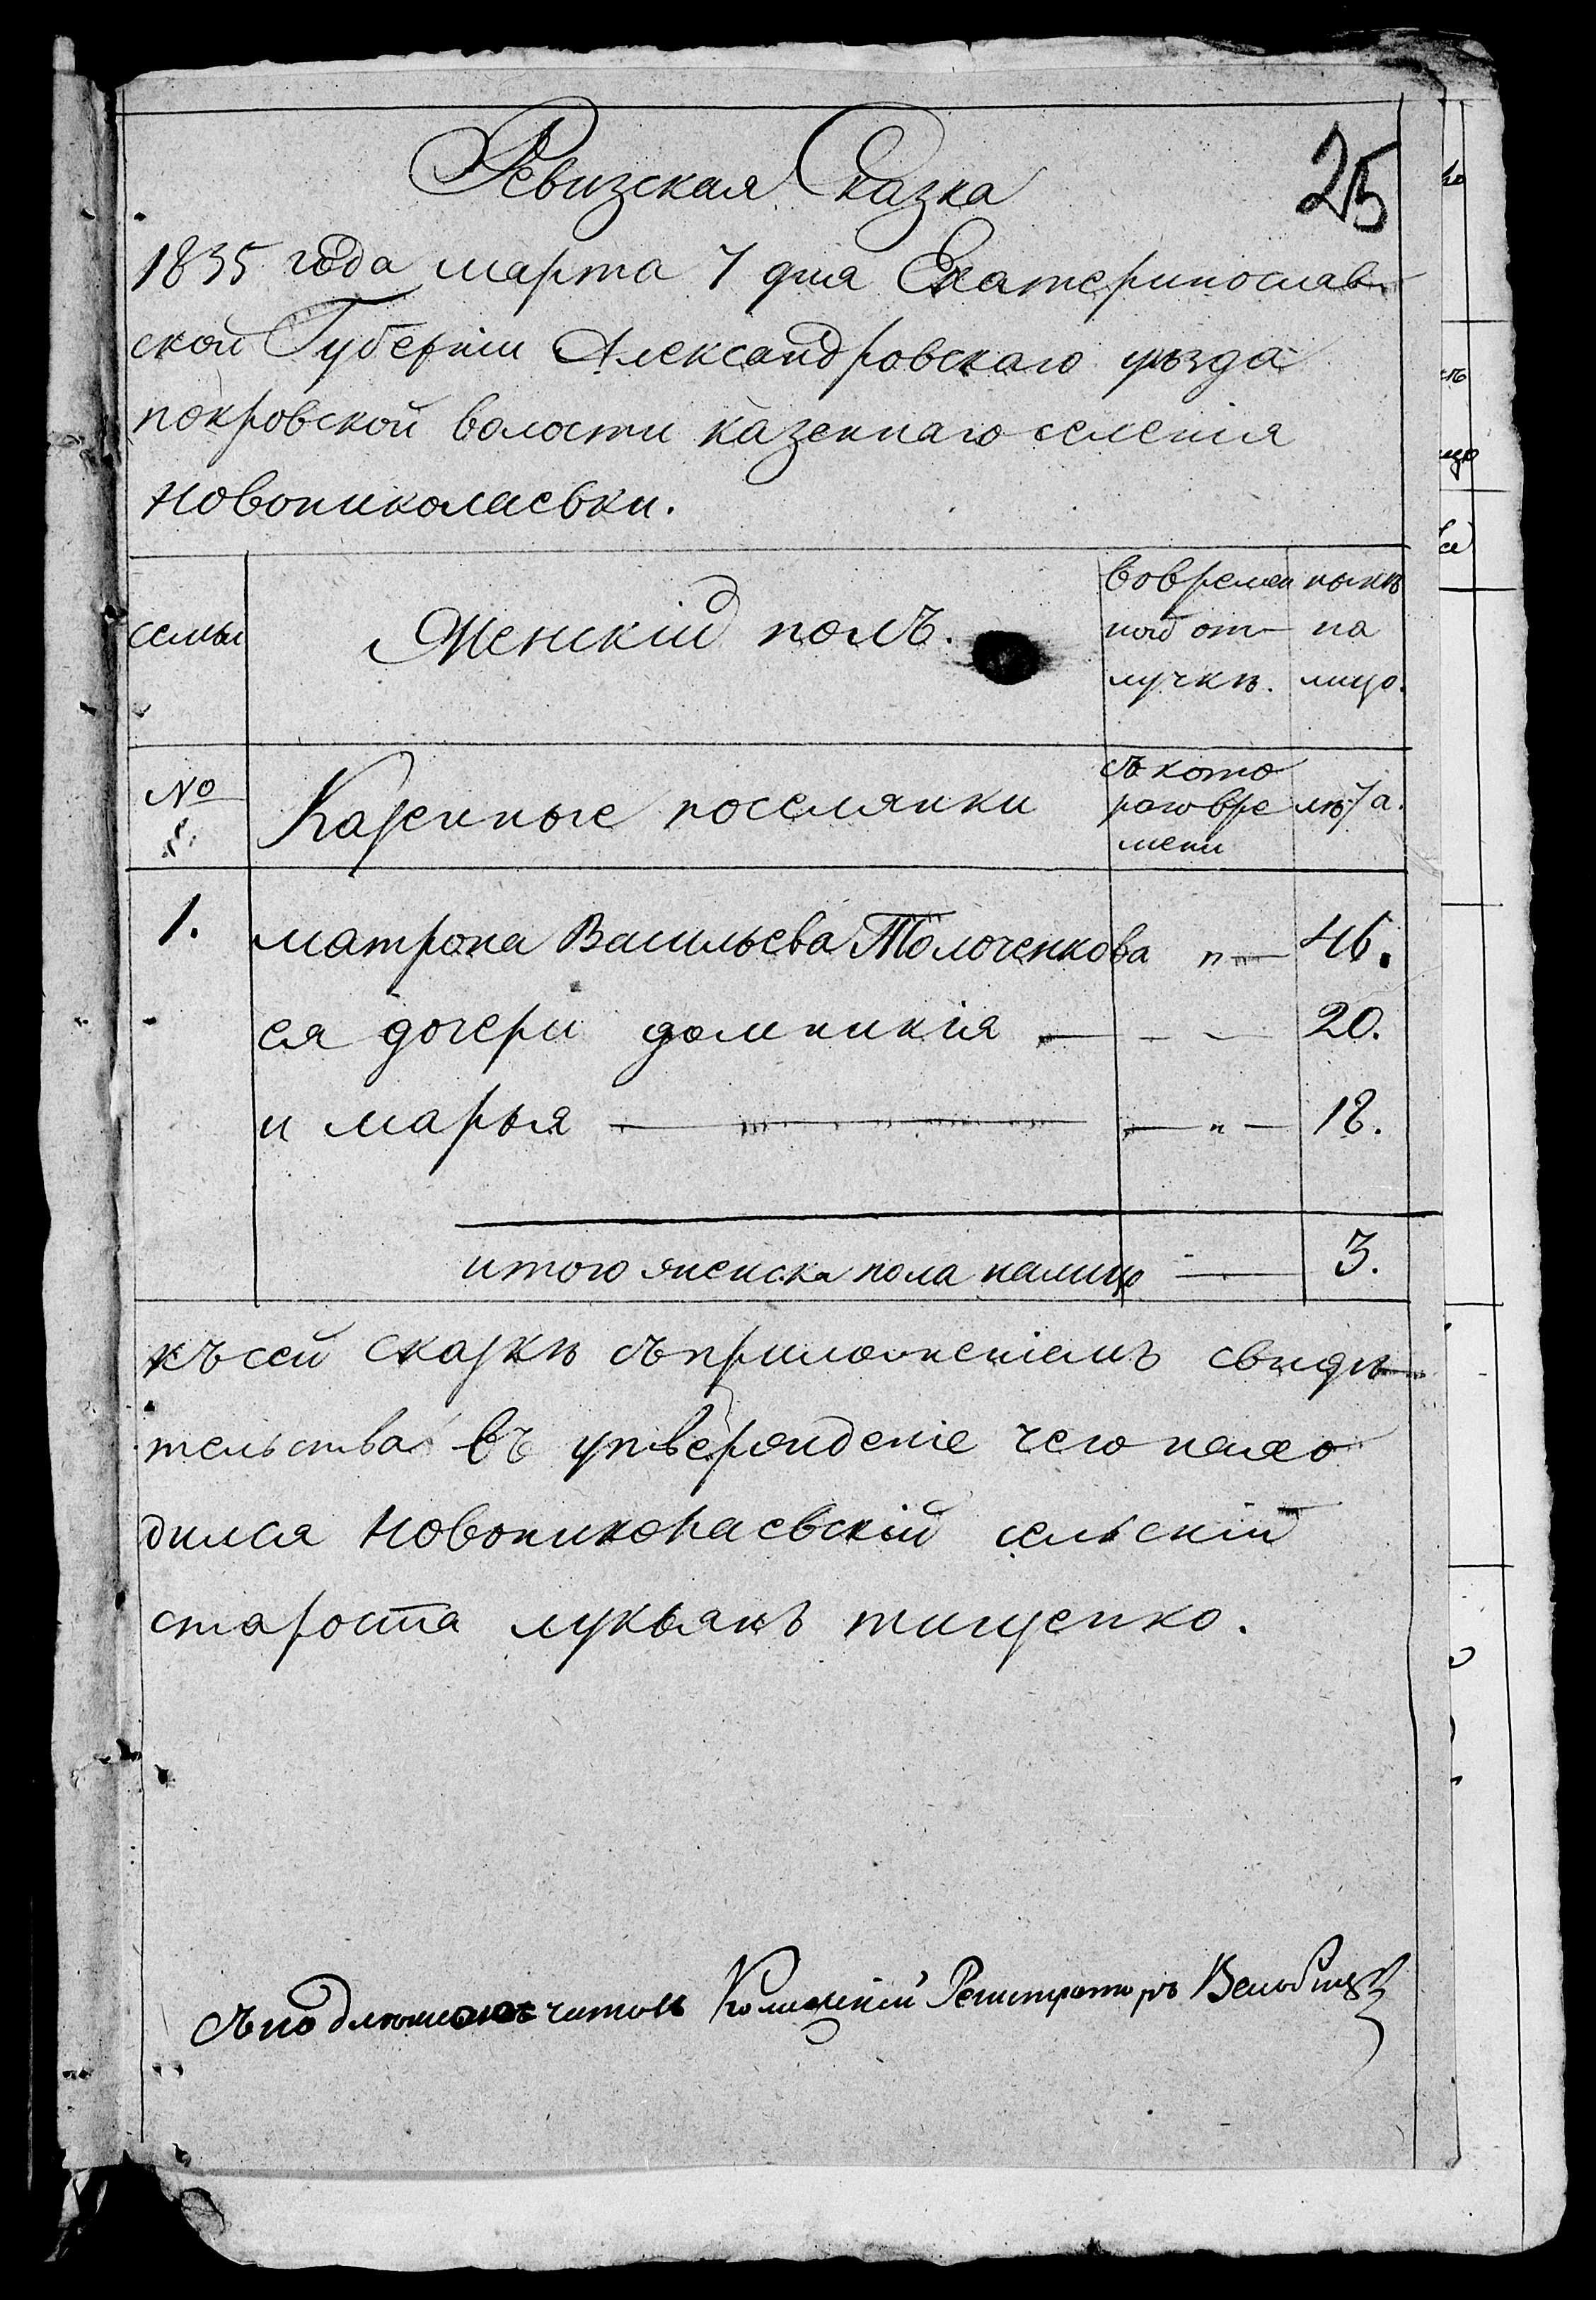 25
Ревизская Сказка
1835 года марта 7 дня Екатеринослав-
ской Губерніи Александровскаго уѣзда
покровской волости казеннаго селенія
Новониколаевки.
семьи
Женскій полъ.
вовремен
ной от-
лучкѣ.
нынѣ
на
лицо.
№
Казенные поселянки
съ кото
раго вре
мени
лѣта.
1. матрона Васильева Толоченкова " — 46.
ея дочери домникія — - — 20.
и марья — — " — 18.
итого женска пола налицо — 3.
къ сей сказкѣ съ приложеніемъ свидѣ-
тельства въ утвержденіе чего нахо
дился Новониколаевскій сельскій
староста лукьянъ тищенко.
читалъ Колежскій Регистраторъ